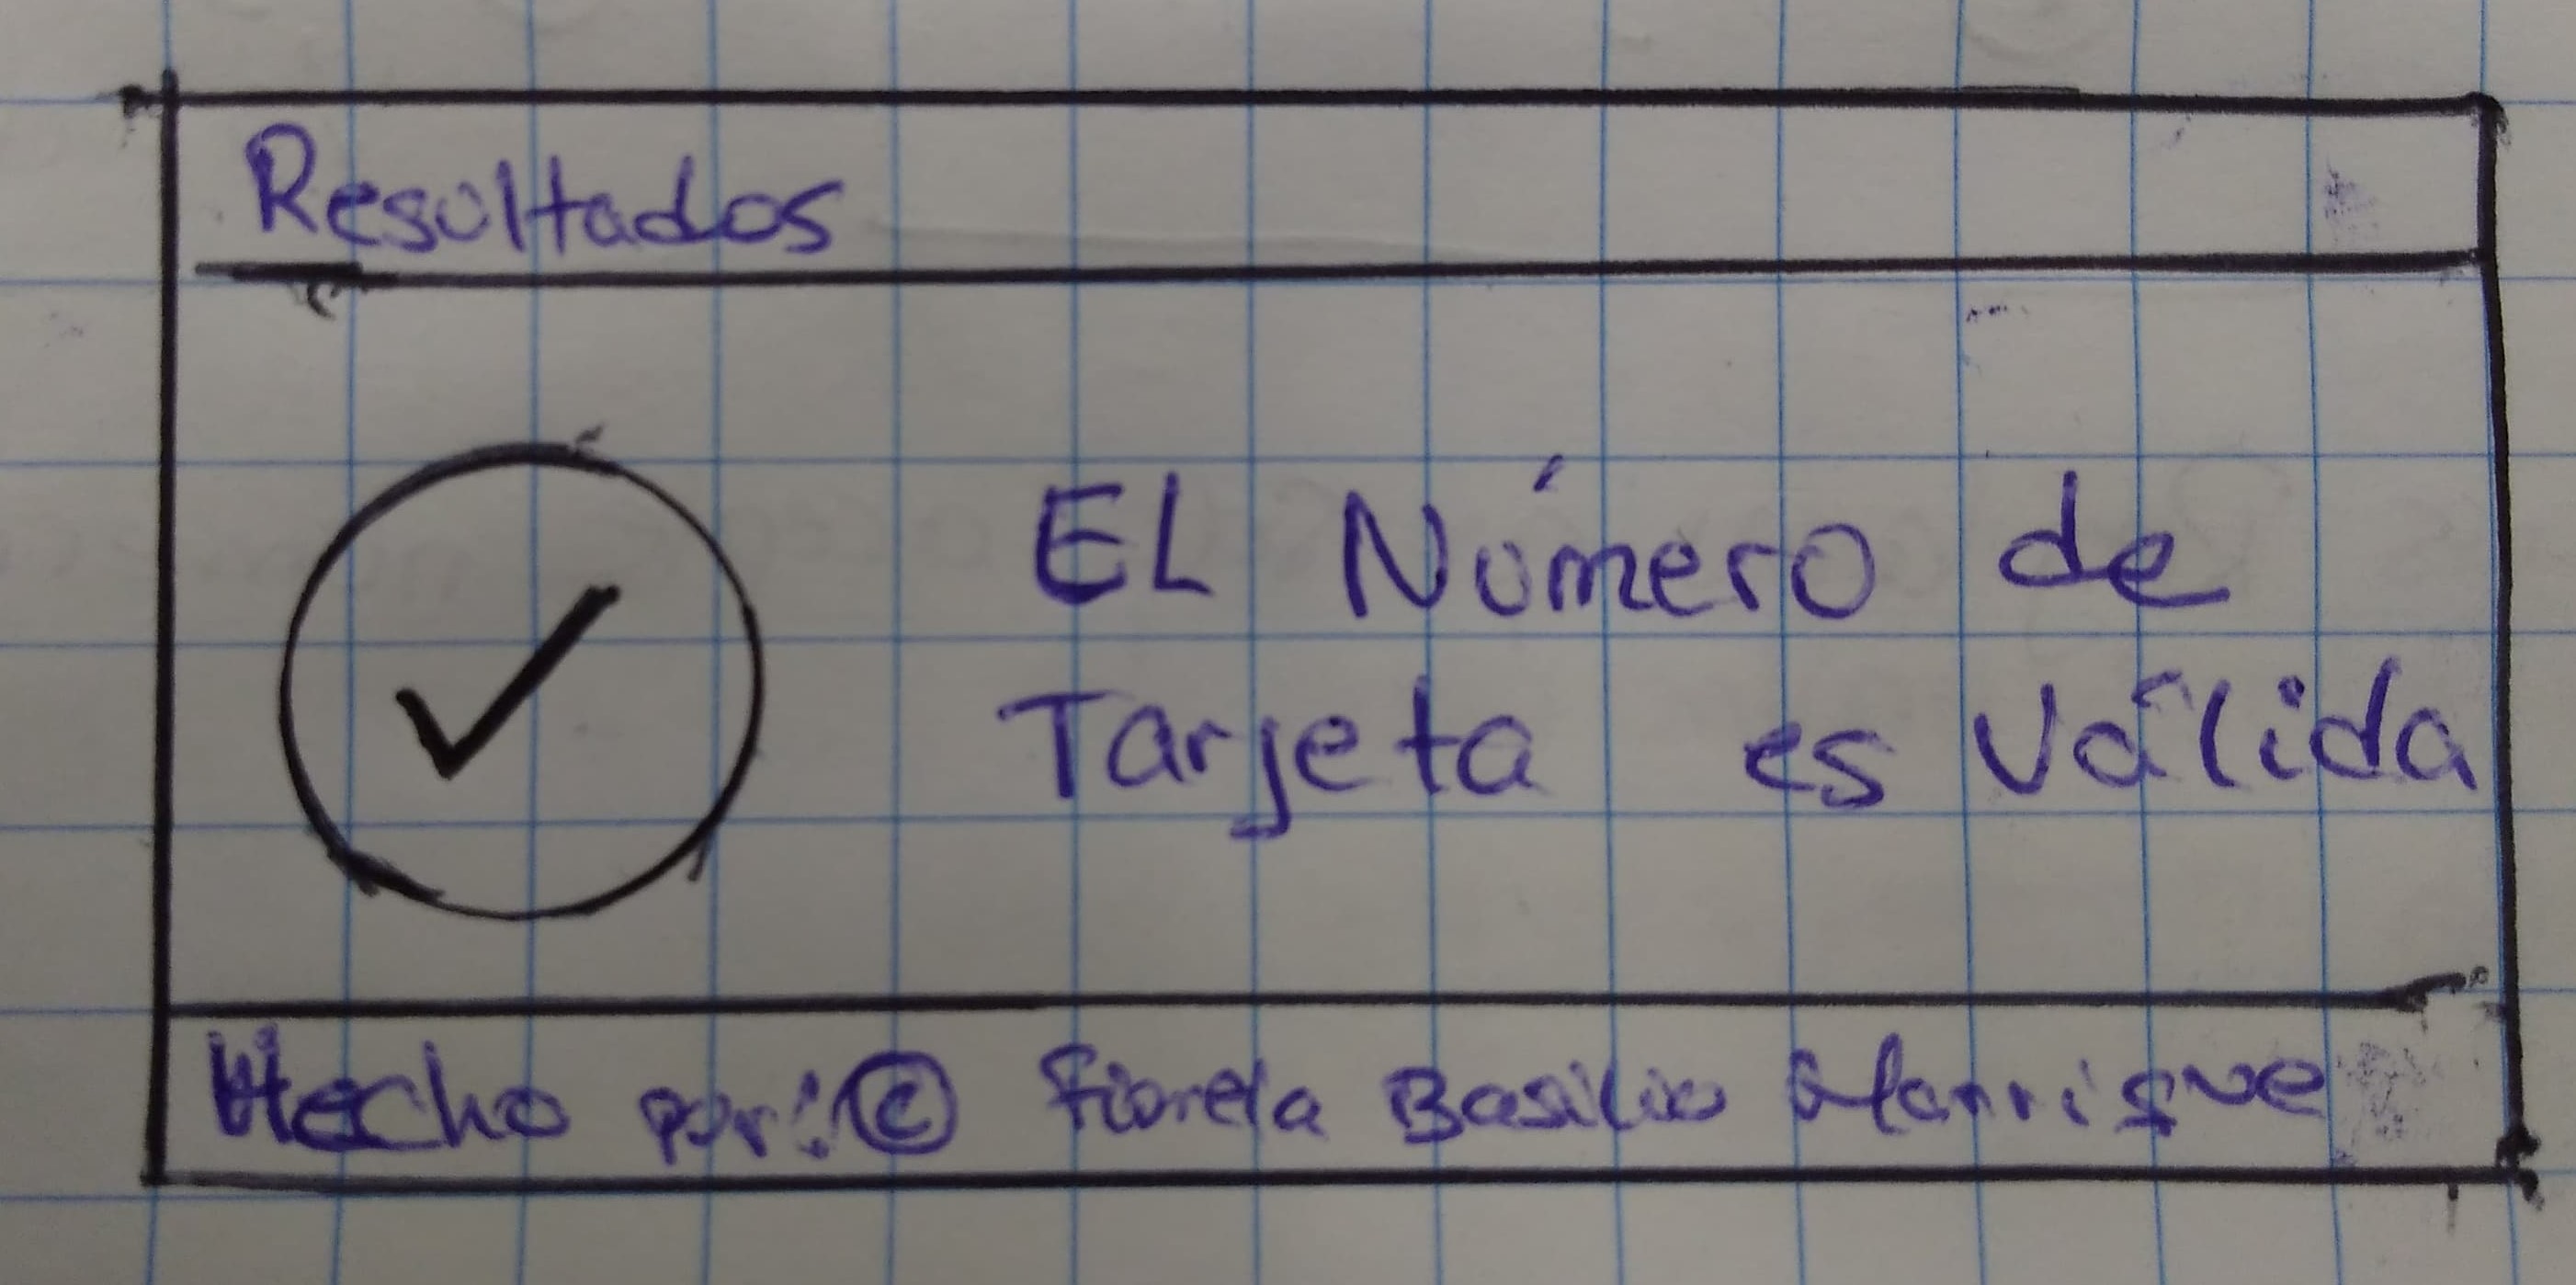 Resultados
EL Número de
Tarjeta es Válida
Hecho por: © fiorela Basilio Manrique